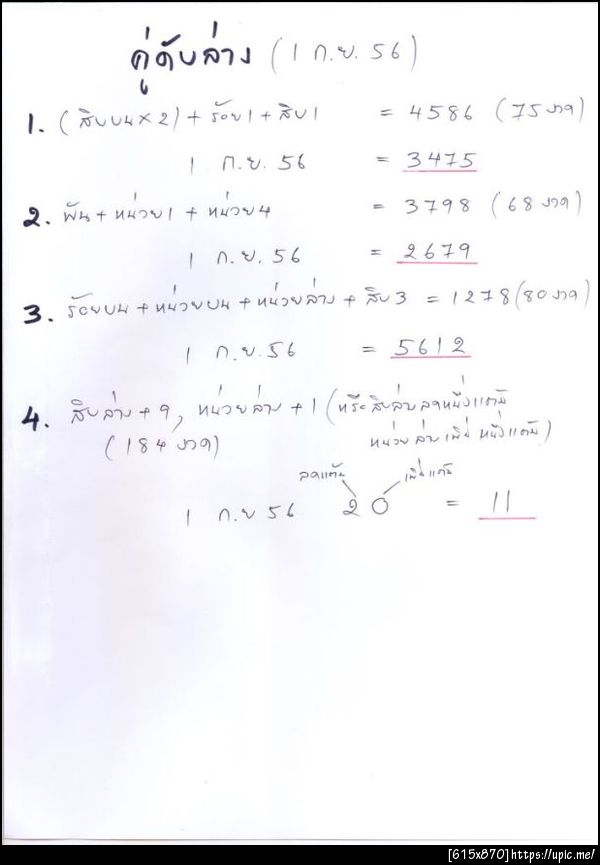 คู่ดับล่าง (1 ก.ย. 56)
1. (สิบบน×2) + ร้อย1 + สิบ1 = 4586 (75 งวด)
1 ก.ย. 56 = 3475
2. พัน + หน่วย1 + หน่วย4 = 3798 (68 งวด)
1 ก.ย. 56 = 2679
3. ร้อยบน + หน่วยบน + หน่วยล่าง + สิบ3 = 1278 (80 งวด)
1 ก.ย. 56 = 5612
4. สิบล่าง + 9, หน่วยล่าง + 1 (หรือสิบล่างลดหนึ่งแต้ม
(184 งวด) หน่วยล่างเพิ่มหนึ่งแต้ม)
ลดแต้ม เพิ่มแต้ม
1 ก.ย 56 20 = 11
[615x870]https://upic.me/